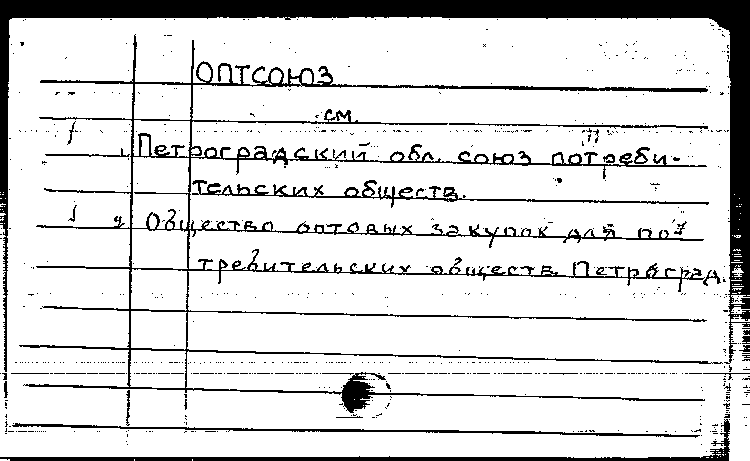 ОПТСОЮЗ
см.
1. Петроградский обл. союз потреби-
тельских обществ.
2 Общество оптовых закупок для по-
требительских обществ. Петроград.